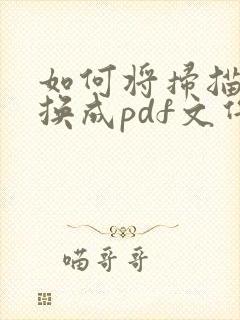 如何将扫描
换成pdf文件
喵哥哥